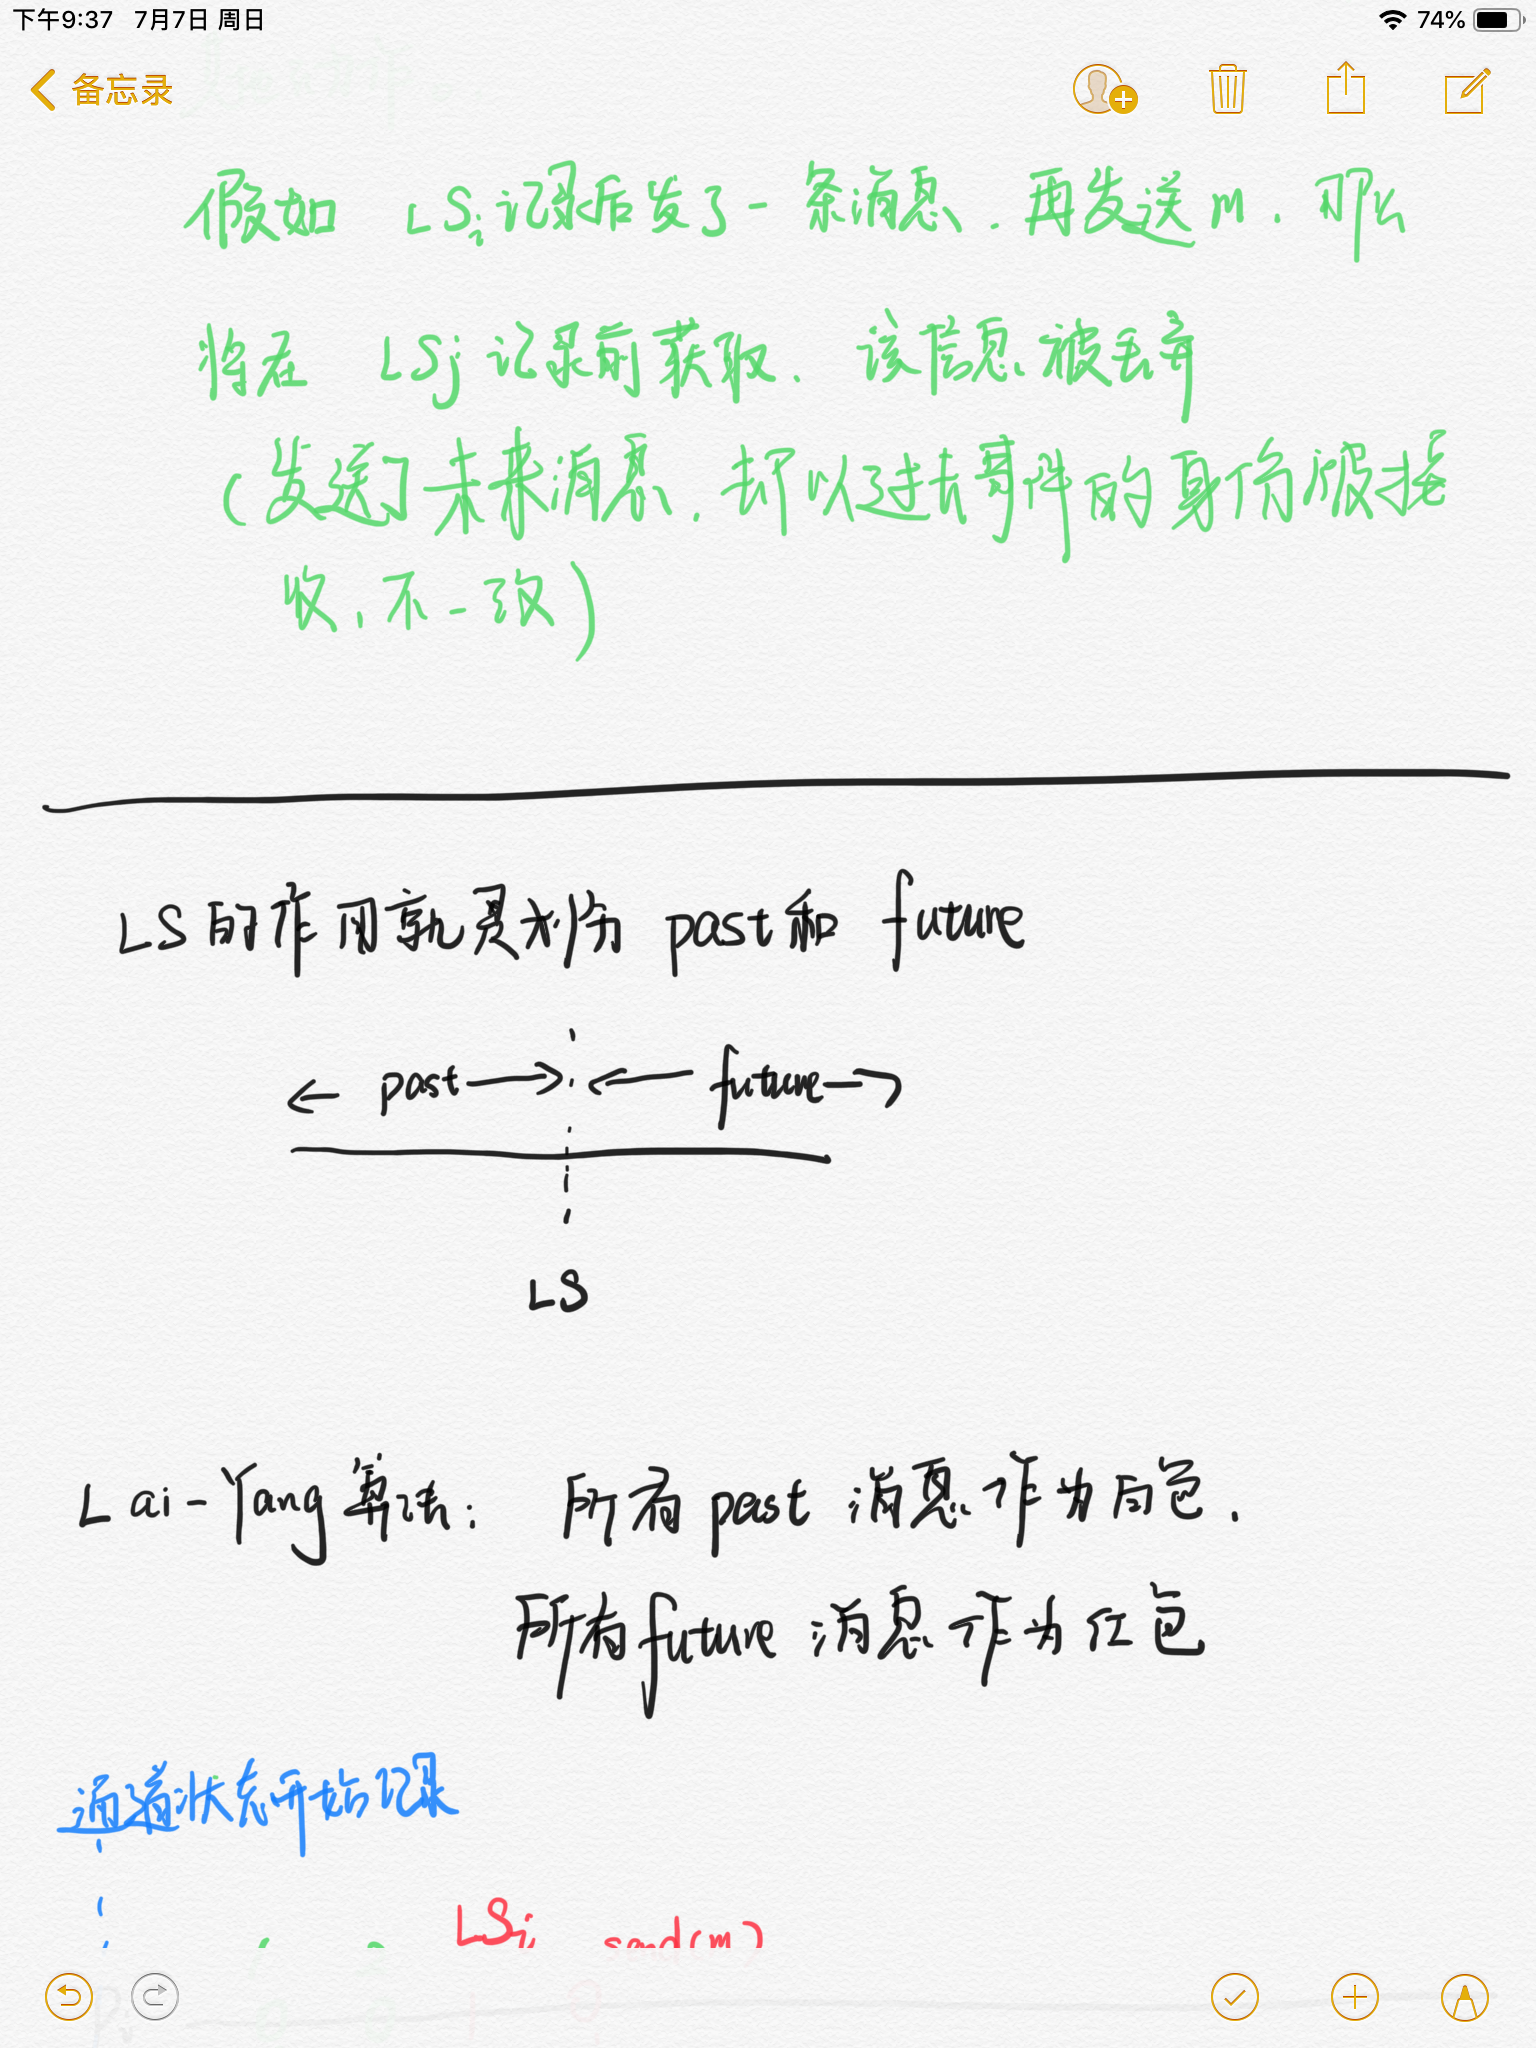 下午9:37 7月7日 周日 74%
备忘录
假如 LSi 记录后发了一条消息, 再发送m, 那么
将在 LSj 记录前获取, 该信息被丢弃
(发送了未来消息, 却以过去事件的身份被接
收, 不一致)
LS的作用就是划分 past和 future
past future
LS
Lai-Yang算法: 所有past 消息作为白色.
所有future 消息作为红色
通道状态开始记录
LSi send(m)
Pi